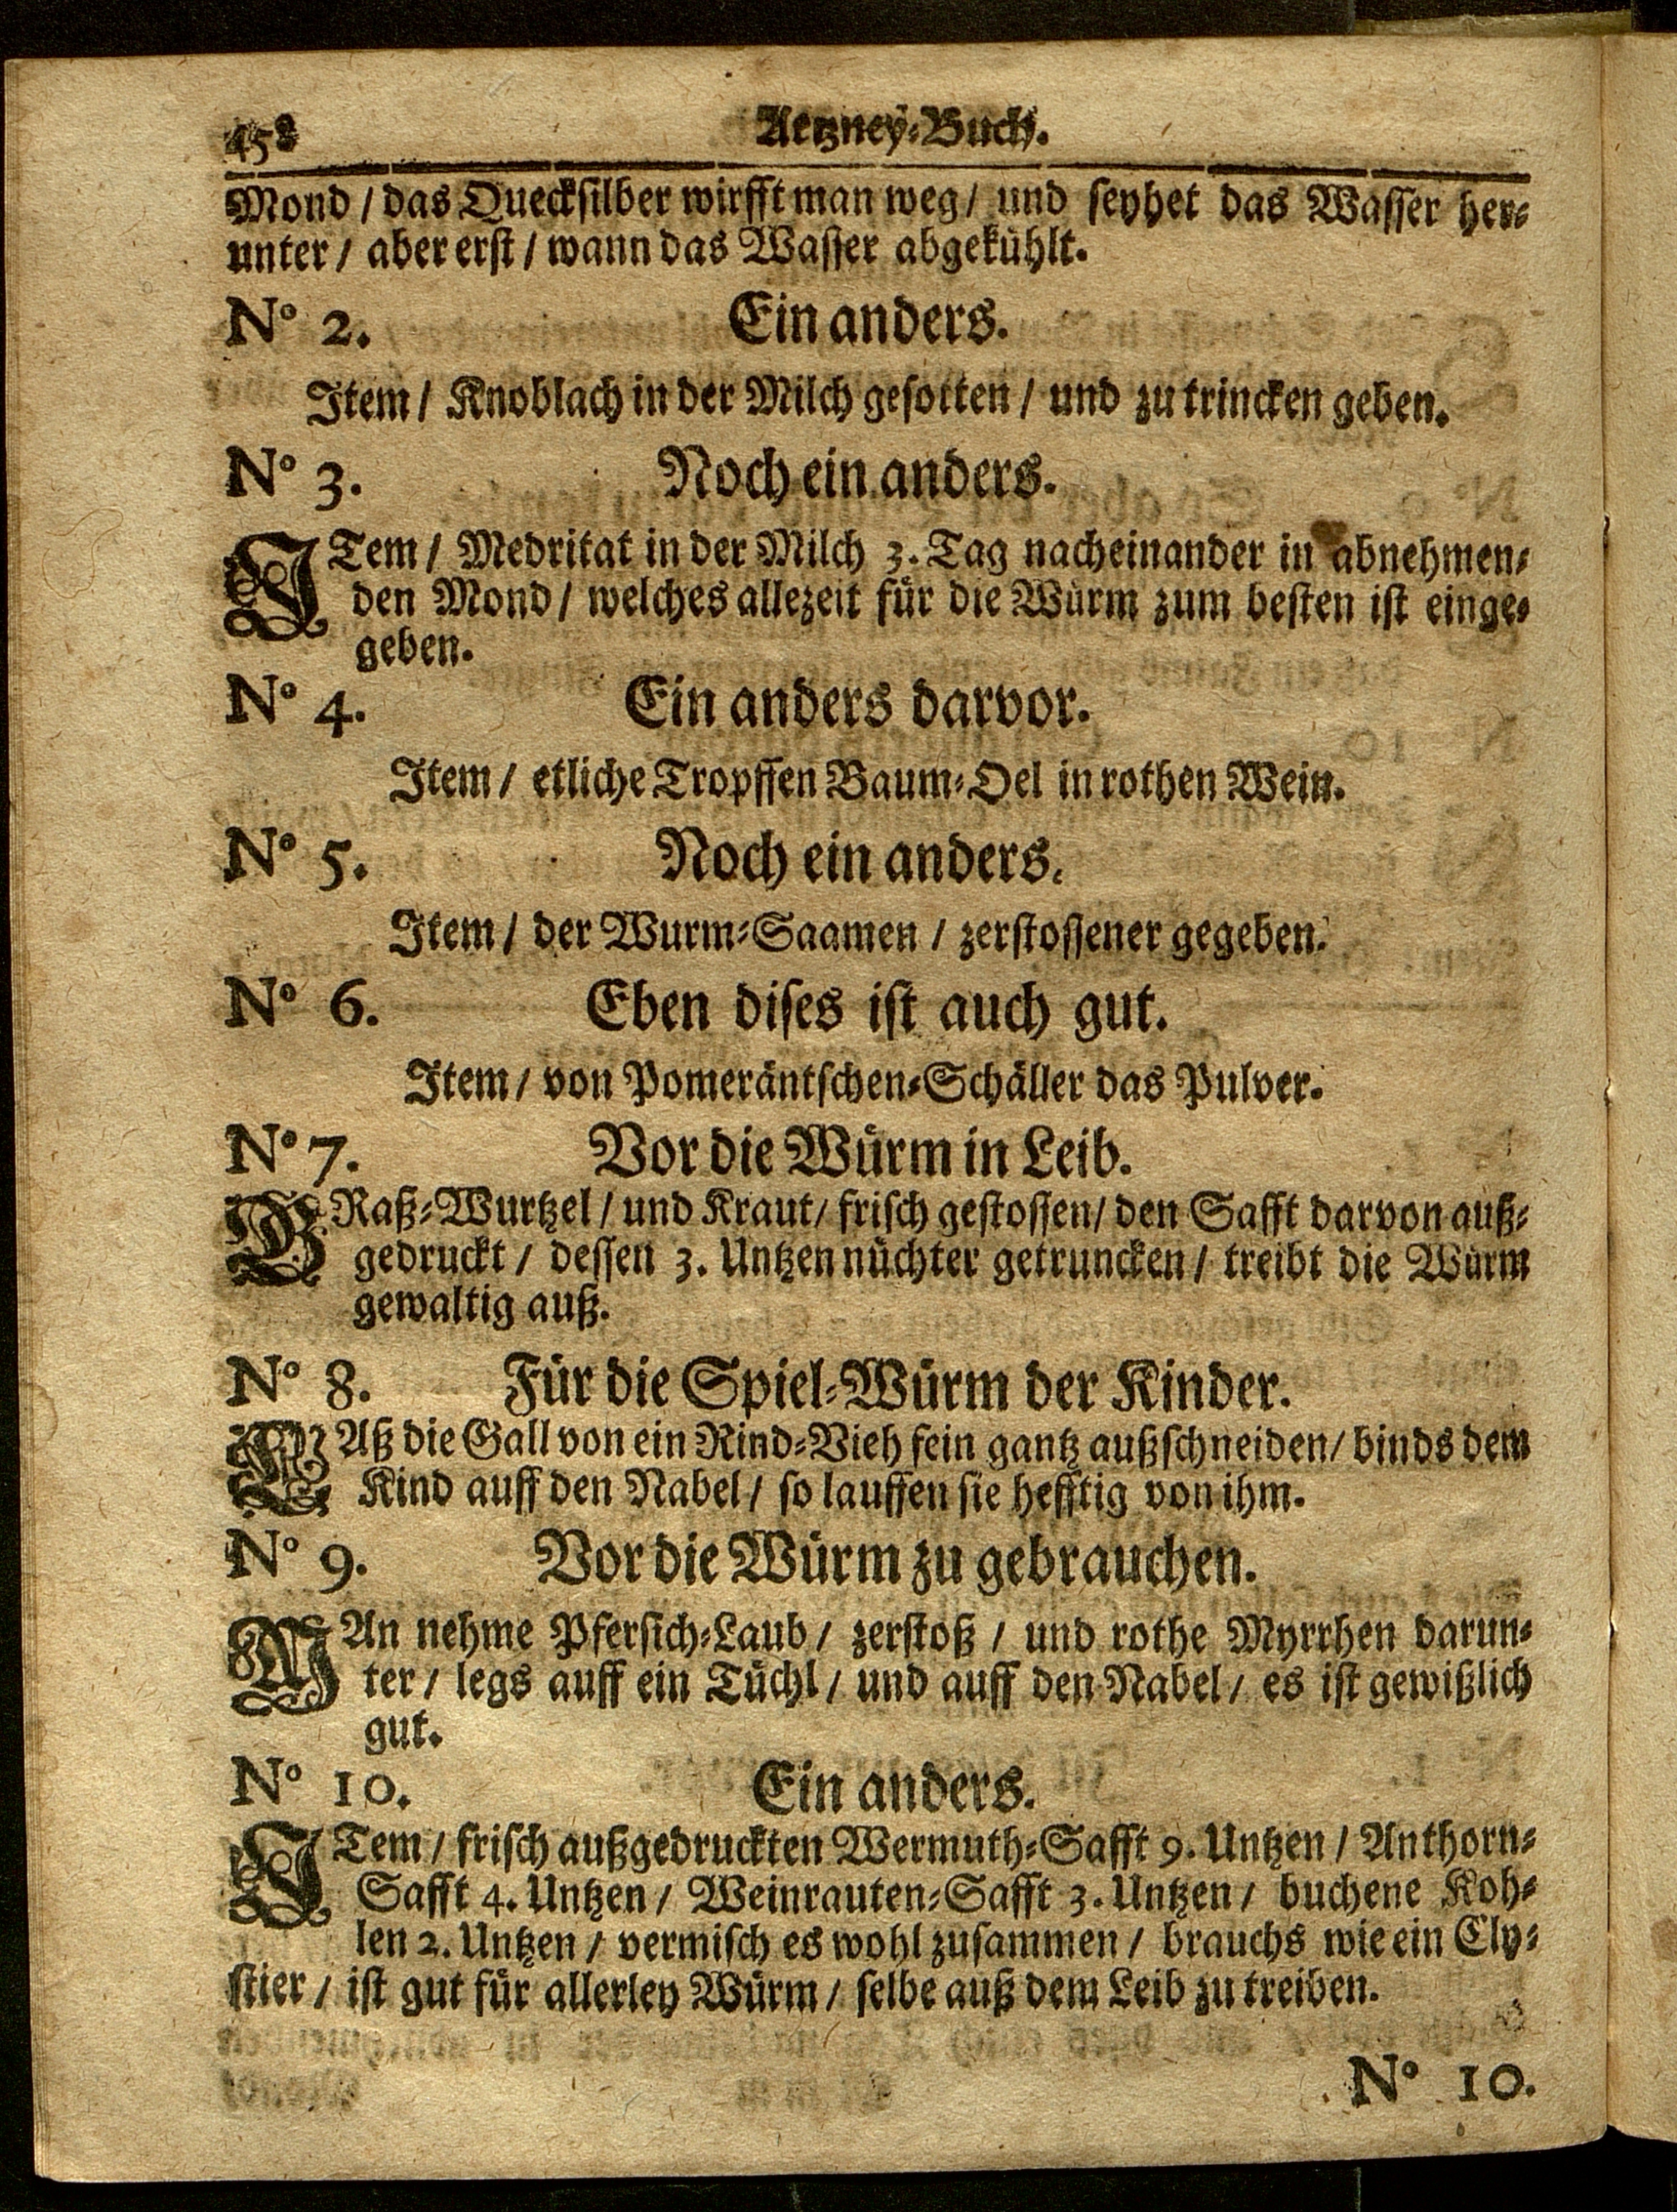 458 Artzney-Buch.
Mond / das Quecksilber wirfft man weg / und seyhet das Wasser her-
unter / aber erst / wann das Wasser abgekühlt.
N° 2. Ein anders.
Item / Knoblach in der Milch gesotten / und zu trincken geben.
N° 3. Noch ein anders.
ITem / Medritat in der Milch 3. Tag nacheinander in abnehmen-
den Mond / welches allezeit für die Würm zum besten ist einge-
geben.
N° 4. Ein anders darvor.
Item / etliche Tropffen Baum-Oel in rothen Wein.
N° 5. Noch ein anders.
Item / der Wurm-Saamen / zerstossener gegeben.
N° 6. Eben dises ist auch gut.
Item / von Pomeräntschen-Schäller das Pulver.
N° 7. Vor die Würm in Leib.
GRaß-Wurtzel / und Kraut / frisch gestossen / den Safft darvon auß-
gedruckt / dessen 3. Untzen nüchter getruncken / treibt die Würm
gewaltig auß.
N° 8. Für die Spiel-Würm der Kinder.
LAß die Gall von ein Rind-Vieh fein gantz außschneiden / binds dem
Kind auff den Nabel / so lauffen sie hefftig von ihm.
N° 9. Vor die Würm zu gebrauchen.
MAn nehme Pfersich-Laub / zerstoß / und rothe Myrrhen darun-
ter / legs auff ein Tüchl / und auff den Nabel / es ist gewißlich
gut.
N° 10. Ein anders.
ITem / frisch außgedruckten Wermuth-Safft 9. Untzen / Anthorn-
Safft 4. Untzen / Weinrauten-Safft 3. Untzen / buchene Koh-
len 2. Untzen / vermisch es wohl zusammen / brauchs wie ein Cly-
stier / ist gut für allerley Würm / selbe auß dem Leib zu treiben.
N° 10.